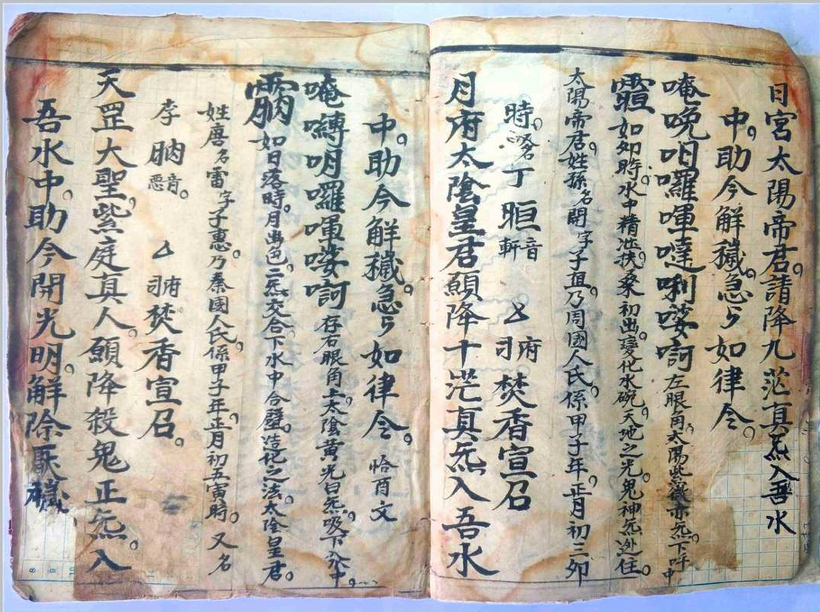 日宮太陽帝君請降九茫真炁入吾水
中助今解穢急々如律令
唵晚呾囉㖶噠唎娑訶左眼角太陽此激赤炁下呼中
如卯時水中精池扶桑初出変化水碗天地之光鬼神炁迯住
太陽帝君姓孫名開字子直乃周國人氏係甲子年正月初三卯
時 丁晅音軒 焚香宣召
月府太陰皇君願降十茫真炁入吾水
中助今解穢急々如律令 恰酉文
唵嚩明囉㖶娑訶存右眼角上太陰黃光白炁吸下入水中
如日落時月出色二炁交合下水中合壁造化之法太陰皇君
姓唐名雷字子惠乃秦國人氏係甲子年正月初五寅時又名
李 音惡 焚香宣召
天罡大聖紫庭真人願降殺鬼正炁入
吾水中助今開光明解除厭穢